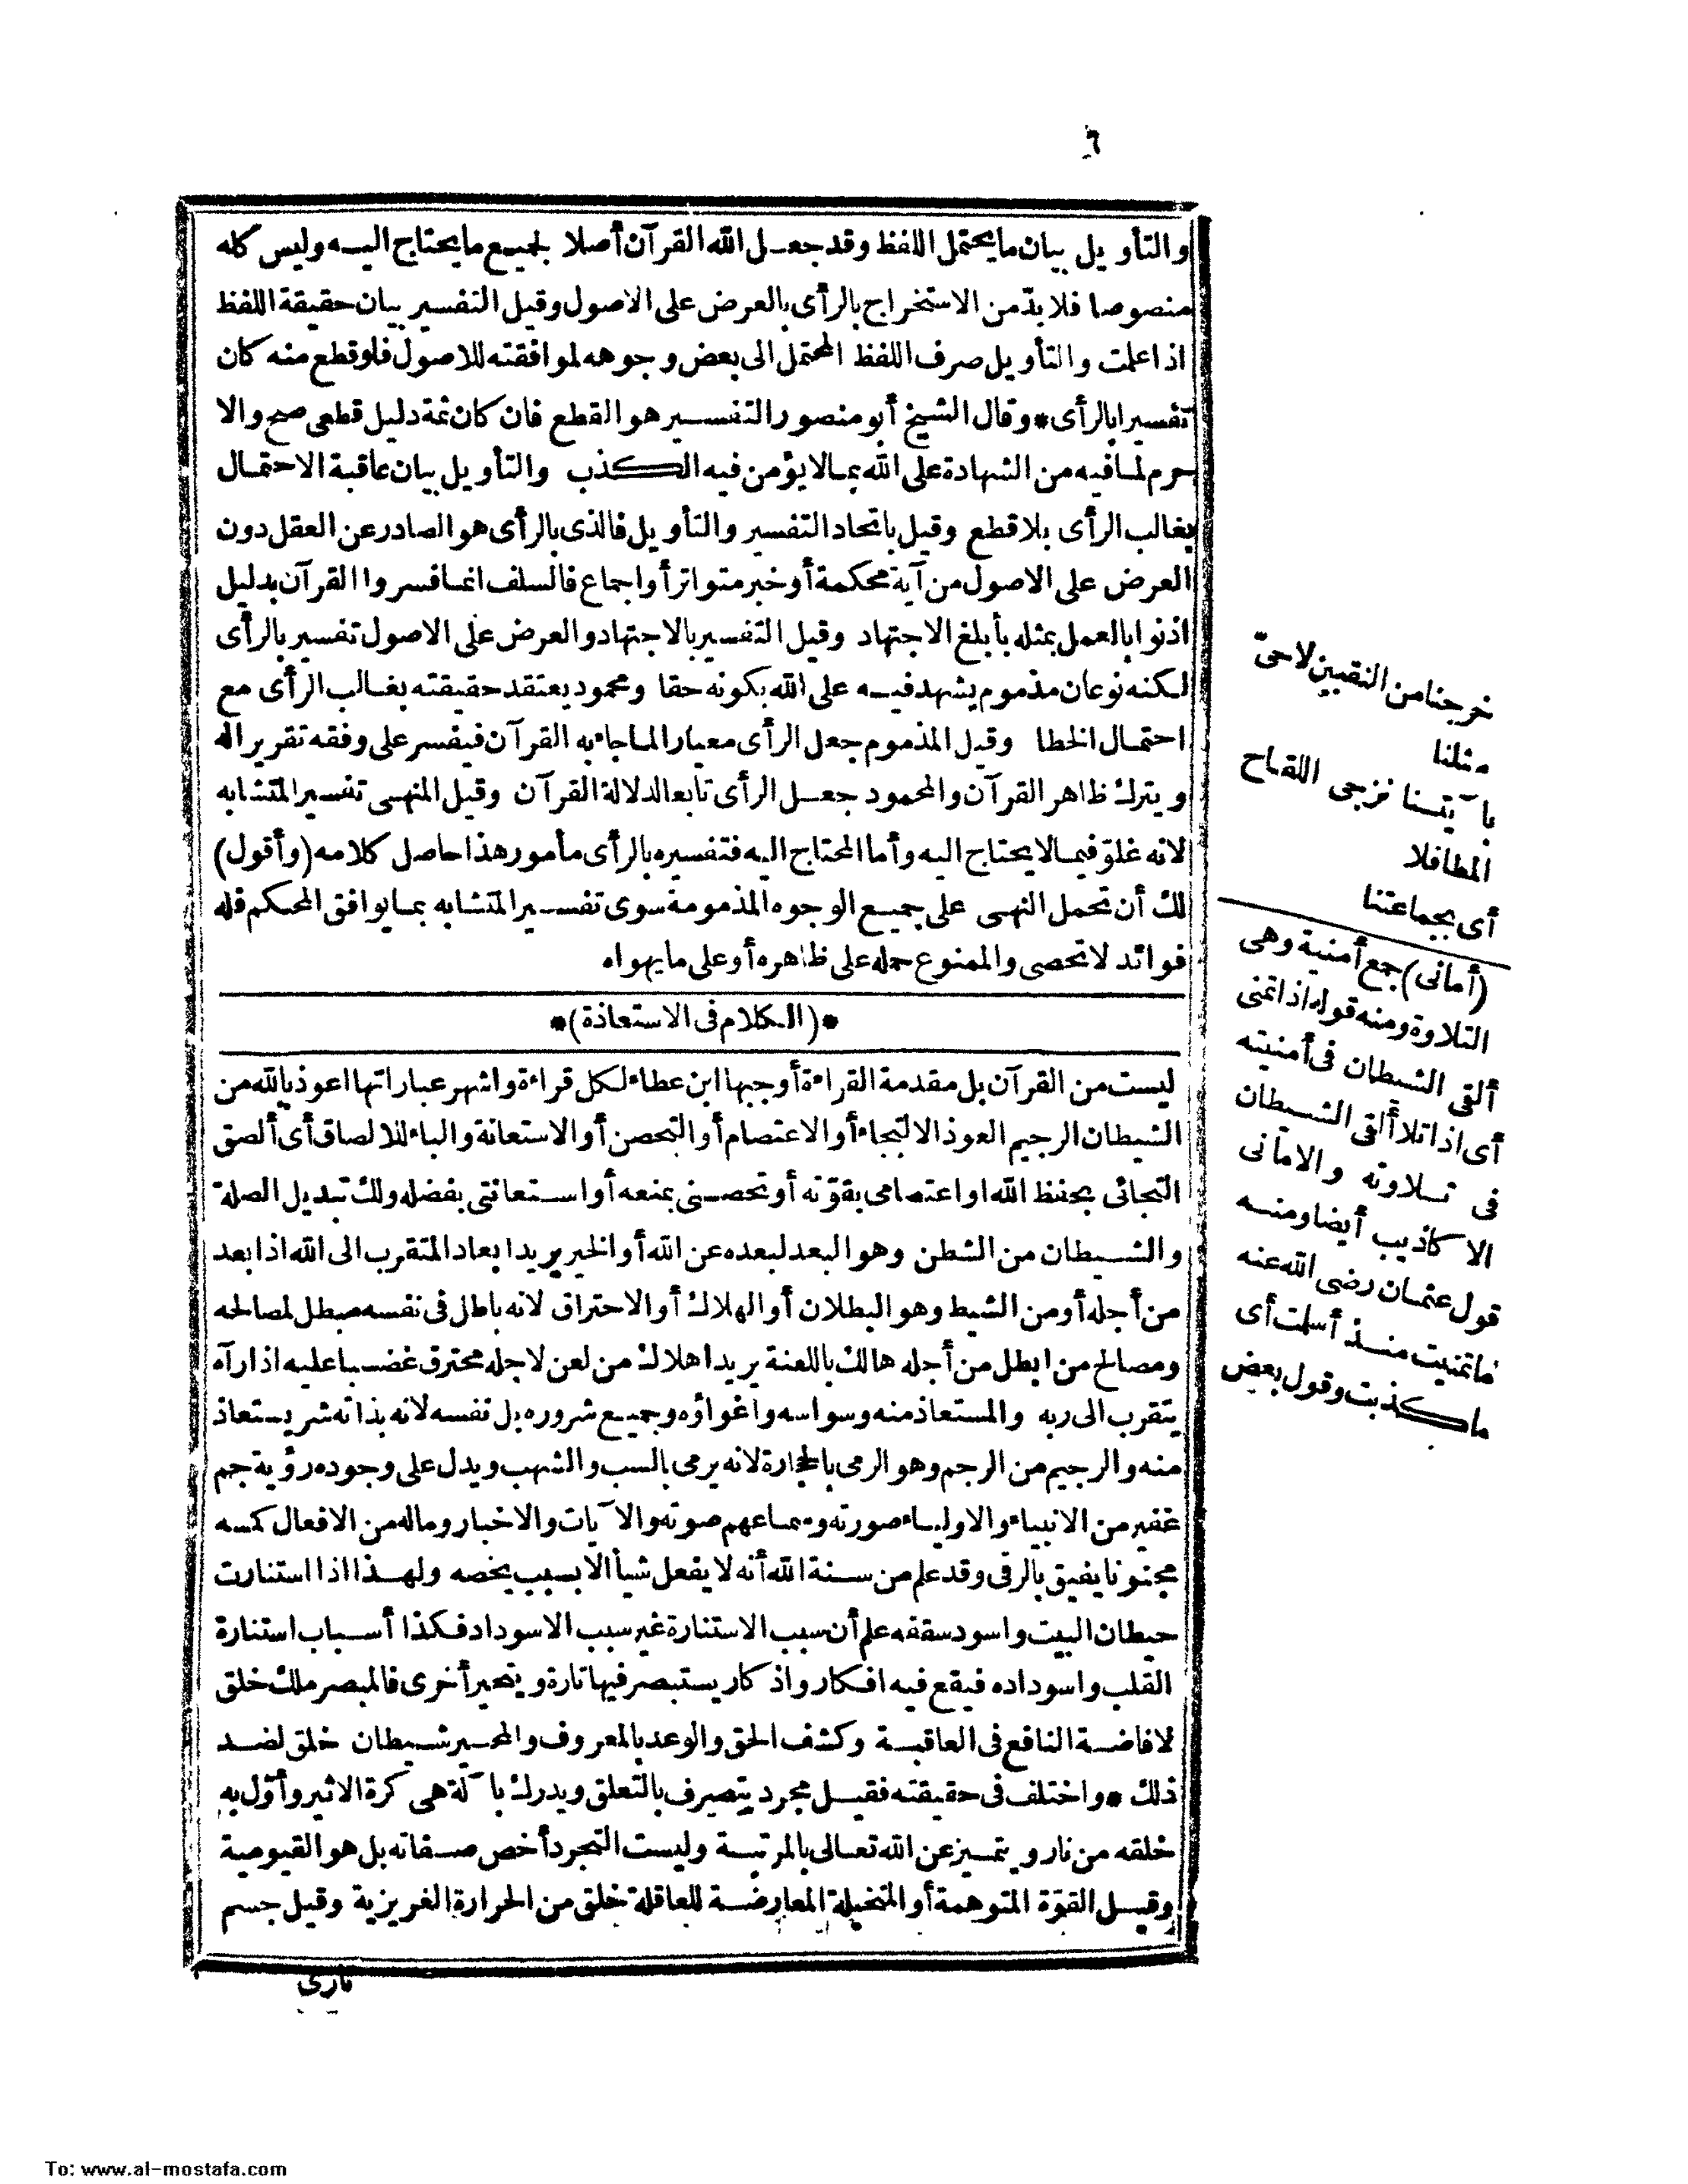 ٦
والتأويل بيان ما يحتمل اللفظ وقد جعل الله القرآن أصلا لجميع ما يحتاج اليه وليس كله
منصوصا فلا بدّ من الاستخراج بالرأى بالعرض على الاصول وقيل التفسير بيان حقيقة اللفظ
اذا علمت والتأويل صرف اللفظ المحتمل الى بعض وجوهه لموافقته للاصول فلو قطع منه كان
تفسيرا بالرأى * وقال الشيخ أبو منصور التفسير هو القطع فان كان ثمة دليل قطعى صح والا
حرم لما فيه من الشهادة على الله بما لا يؤمن فيه الكذب والتأويل بيان عاقبة الاحتمال
بغالب الرأى بلا قطع وقيل باتحاد التفسير والتأويل فالذى بالرأى هو الصادر عن العقل دون
العرض على الاصول من آية محكمة أو خبر متواتر أو اجماع فالسلف انما فسروا القرآن بدليل
اذنوا بالعمل بمثله بأبلغ الاجتهاد وقيل التفسير بالاجتهاد والعرض على الاصول تفسير بالرأى
لكنه نوعان مذموم يشهد فيه على الله بكونه حقا ومحمود يعتقد حقيقته بغالب الرأى مع
احتمال الخطا وقيل المذموم جعل الرأى معيارا لما جاء به القرآن فيفسر على وفقه تقريرا له
ويترك ظاهر القرآن والمحمود جعل الرأى تابعا لدلالة القرآن وقيل المنهى تفسير المتشابه
لانه غلوّ فيما لا يحتاج اليه وأما المحتاج اليه فتفسيره بالرأى مأمور هذا حاصل كلامه (وأقول)
لك أن تحمل النهى على جميع الوجوه المذمومة سوى تفسير المتشابه بما يوافق المحكم فله
فوائد لا تحصى والممنوع حمله على ظاهره أو على ما يهواه
*(الكلام فى الاستعاذة)*
ليست من القرآن بل مقدمة القراءة أوجبها ابن عطاء لكل قراءة واشهر عباراتها اعوذ بالله من
الشيطان الرجيم العوذ الالتجاء أو الاعتصام أو التحصن أو الاستعانة والباء للالصاق أى ألصق
التجائى بحفظ الله او اعتصامى بقوّته أو تحصنى بمنعه أو استعانتى بفضله ولك تبديل الصلة
والشيطان من الشطن وهو البعد لبعده عن الله أو الخير يريد ابعاد المتقرب الى الله اذا بعد
من أجله أو من الشيط وهو البطلان أو الهلاك أو الاحتراق لانه باطل فى نفسه مبطل لمصالحه
ومصالح من ابطل من أجله هالك باللعنة يريد اهلاك من لعن لاجله محترق غضبا عليه اذا رآه
يتقرب الى ربه والمستعاذ منه وسواسه واغواؤه وجميع شروره بل نفسه لانه بذاته شر يستعاذ
منه والرجيم من الرجم وهو الرمى بالحجارة لانه يرمى بالسب والشهب ويدل على وجوده رؤية جم
غفير من الانبياء والاولياء صورته وسماعهم صوته والآيات والاخبار وماله من الافعال كمسه
مجنونا يفيق بالرقى وقد علم من سنة الله أنه لا يفعل شيأ الا بسبب يخصه ولهذا اذا استنارت
حيطان البيت واسود سقفه علم أن سبب الاستنارة غير سبب الاسوداد فكذا أسباب استنارة
القلب واسوداده فيقع فيه افكار واذكار يستبصر فيها تارة ويتحير أخرى فالمبصر ملك خلق
لافاضة النافع فى العاقبة وكشف الحق والوعد بالمعروف والمحير شيطان خلق لضد
ذلك * واختلف فى حقيقته فقيل مجرد يتصرف بالتعلق ويدرك بآلة هى كرة الاثير وأوّل به
خلقه من نار ويتميز عن الله تعالى بالمرتبة وليست التجرد أخص صفاته بل هو القيومية
وقيل القوّة المتوهمة أو المتخيلة المعارضة للعاقلة خلق من الحرارة الغريزية وقيل جسم
نارى
خرجنا من النقبين لاحىّ
مثلنا
بآيتنا نزجى اللقاح
المطافلا
أى بجماعتنا
(أمانى) جمع أمنية وهى
التلاوة ومنه قوله اذا تمنى
ألقى الشيطان فى أمنيته
أى اذا تلا ألقى الشيطان
فى تلاوته والامانى
الاكاذيب أيضا ومنه
قول عثمان رضى الله عنه
ما تمنيت منذ أسلمت أى
ما كذبت وقول بعض
To: www.al-mostafa.com